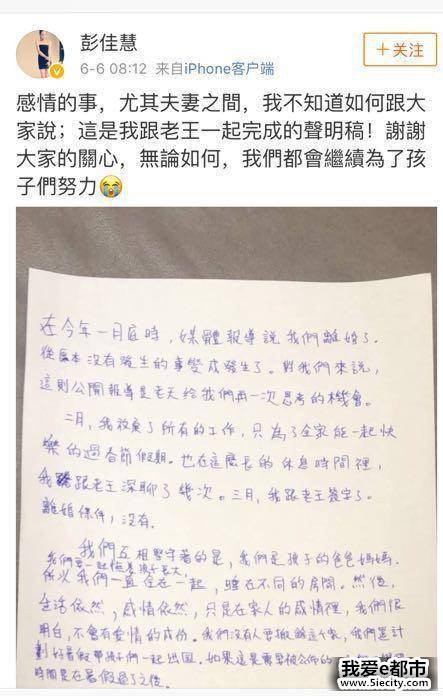 彭佳慧
+关注
6-6 08:12 来自iPhone客户端
感情的事，尤其夫妻之間，我不知道如何跟大
家說；這是我跟老王一起完成的聲明稿！謝謝
大家的關心，無論如何，我們都會繼續為了孩
子們努力😭
在今年一月底時，媒體報導說我們離婚了.
從原本沒有發生的事變成發生了。對我們來說，
這則公開報導是老天給我們再一次思考的機會。
二月，我放棄了所有的工作，只為了全家能一起快
樂的過春節假期。也在這麼長的休息時間裡，
我跟老王深聊了幾次。三月，我跟老王簽字了。
離婚條件，沒有.
我們互相堅守著的是，我們是孩子的爸爸媽媽.
我們要一起陪著孩子長大，
所以我們一直住在一起，睡在不同的房間。然後，
生活依然，感情依然，只是在家人的感情裡，我們很
明白，不會有愛情的成份。我們沒有人要搬離這個家，我們還計
劃好暑假帶孩子們一起出國。如果這是需要被公佈的
時間是在暑假過了之後。
我爱e都市
www.51ecity.com